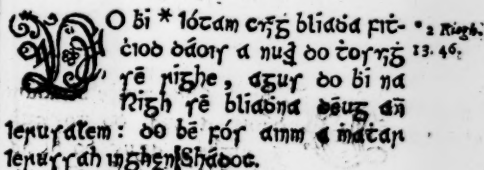 DO ḃí * Iótam cúig bliaḋa fiṫ-
ċiod ḋáois a nuair do ṫosuiġ
sé righe, agus do bi na
Righ sé bliaḋna déug añ
Ierusalem: do bé fós ainm a ṁaṫar
Ierússah inghen Shádoc.
* 2 Riogh.
13. 46.